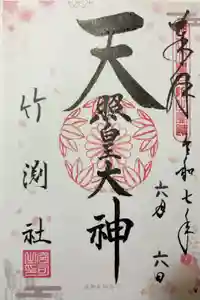 奉拝
令和七年
六月六日
天照皇大神
竹渕社